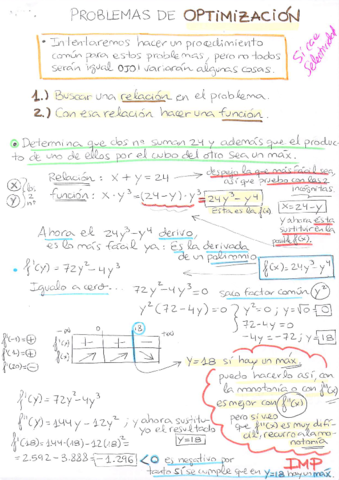 PROBLEMAS DE OPTIMIZACIÓN
• Intentaremos hacer un procedimiento
común para estos problemas, pero no todos
serán igual OJO! variarán algunas cosas.
Si cae
Selectividad
1.) Buscar una relación en el problema.
2.) Con esa relación hacer una función.
• Determina que dos nº suman 24 y además que el produc-
to de uno de ellos por el cubo del otro sea un máx.
Relación: x + y = 24
despejo la que más fácil sea
así que pruebo con las 2
incógnitas.
x
y
2
nº
función: x · y³ = (24-y) · y³ = 24y³-y⁴
Esta es la f(x)
x=24-y
y ahora esta
sustituir en la
f(x).
Ahora el 24y³-y⁴ derivo,
es lo más fácil ya: Es la derivada
de un polinomio
• f'(y) = 72y²-4y³
f(x)=24y³-y⁴
Igualo a cero... 72y²-4y³=0 saco factor común y²
y²(72-4y)=0 y²=0; y=√0=0
72-4y=0
-4y=-72; y=18
-∞ 0 18 +∞
f'(-1)=+
f'(1)=+
f'(20)=-
f'(x) + + -
f(x)
y=18 sí hay un máx.
puedo hacerlo así, con
la monotonía o con f''(x)
es mejor con f''(x)
pero si veo
que f''(x) es muy difí-
cil, recurro a la mo-
notonía
f'(y)=72y²-4y³
f''(y)=144y-12y²; y ahora sustitu-
yo el resultado
y=18
f''(18)=144·(18)-12(18)²=
=2.592-3.888=-1.296 <0 es negativo por
tanto sí se cumple que en y=18 hay un máx.
IMP